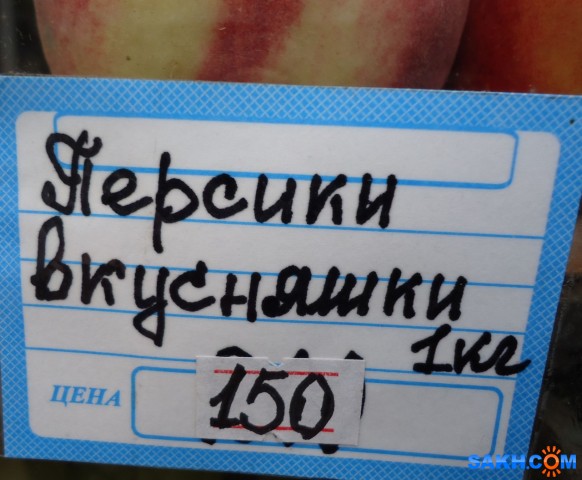 Персики
вкусняшки
1кг
ЦЕНА 150
SAKH.COM